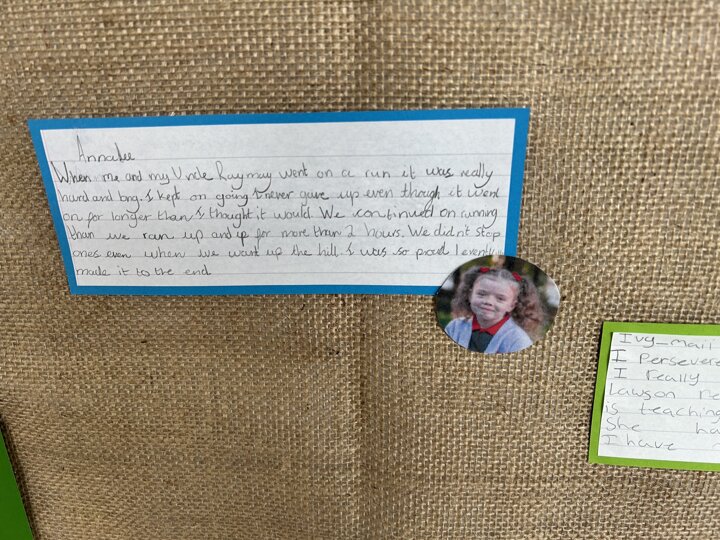 Annalee
When me and my Uncle Raymay went on a run it was really
hurd and long. I kept on going I never gave up even though it went
on for longer than I thought it would. We continued on running
than we ran up and up for more than 2 hours. We didn't stop
ones even when we want up the hill. I was so proud I evently
made it to the end
Ivy-mail
I Persevere
I really
Lawson
is teaching
She ha
I have